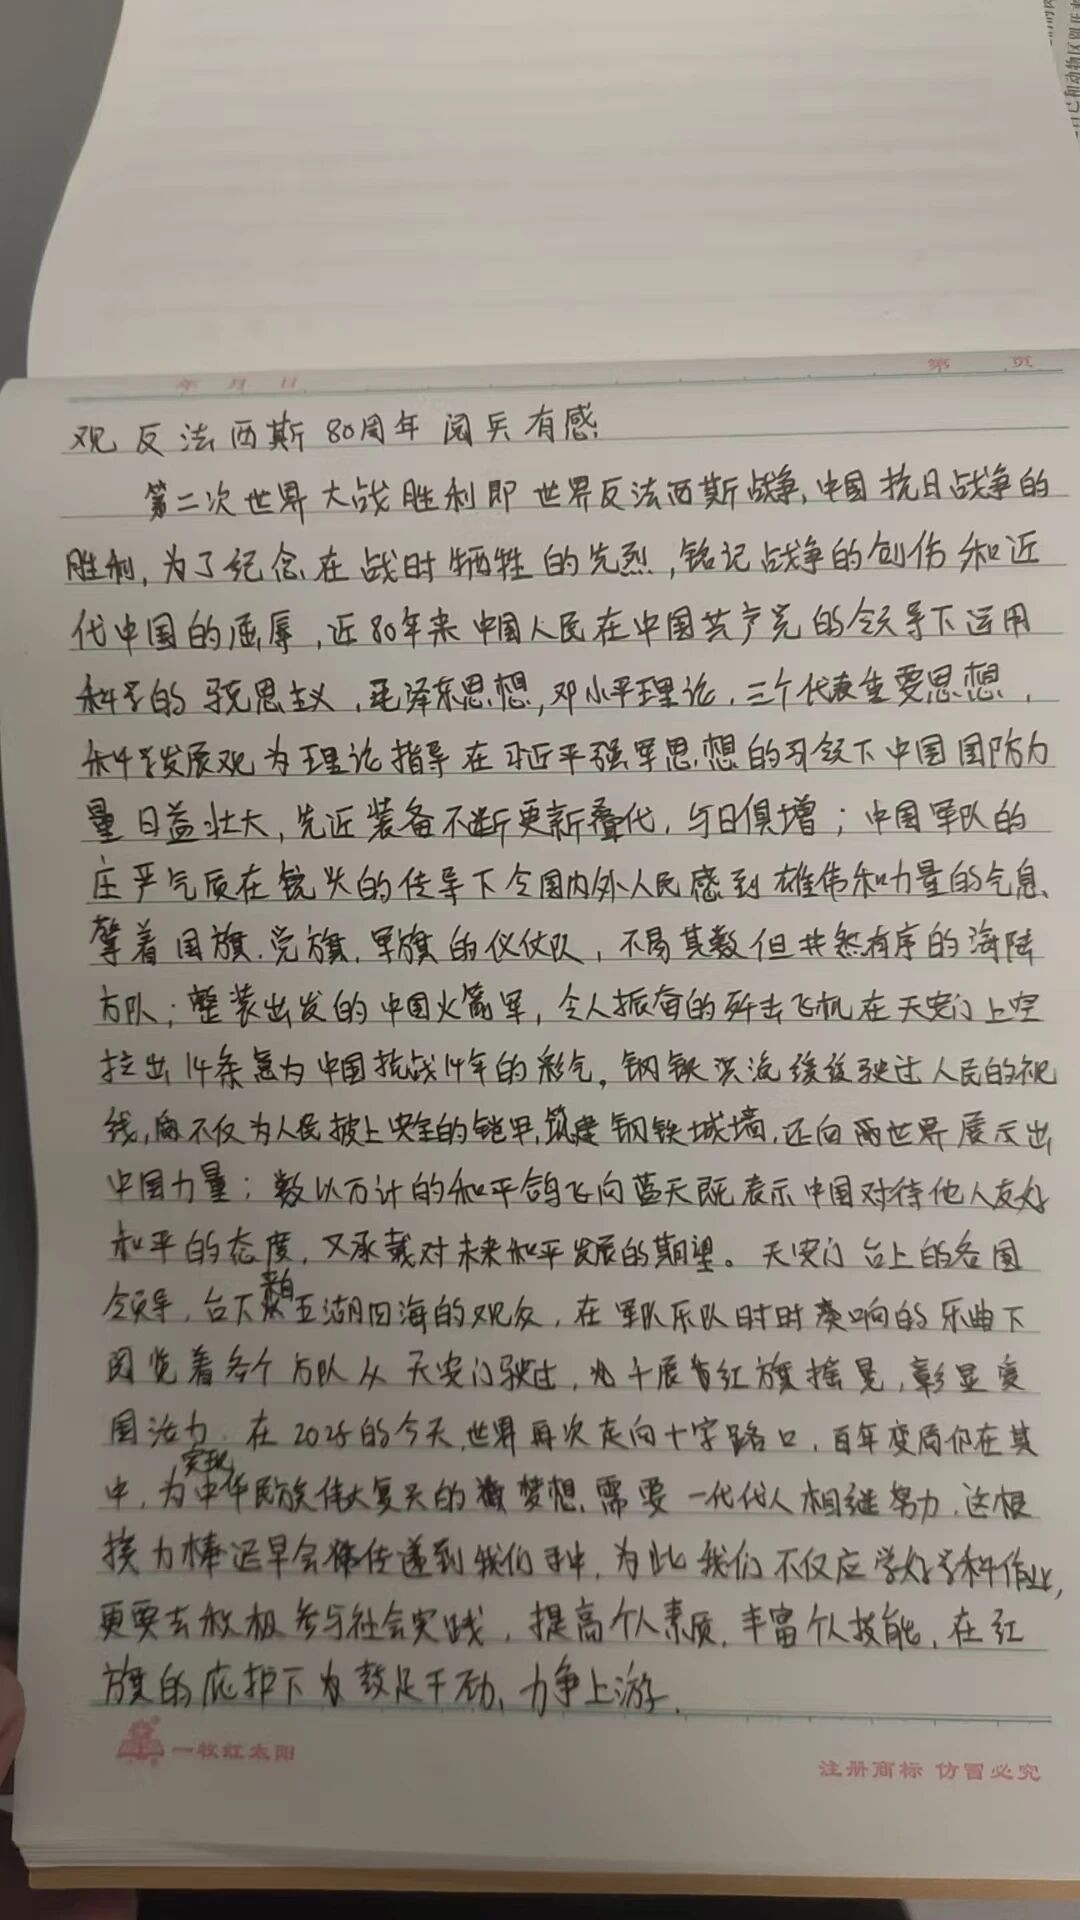 年 月 日
第 页
观反法西斯80周年阅兵有感
第二次世界大战胜利即世界反法西斯战争,中国抗日战争的
胜利,为了纪念在战时牺牲的先烈,铭记战争的创伤和近
代中国的屈辱,近80年来中国人民在中国共产党的领导下运用
科学的马克思主义,毛泽东思想,邓小平理论,三个代表重要思想,
科学发展观为理论指导在习近平强军思想的引领下中国国防力
量日益壮大,先近装备不断更新叠代,与日俱增;中国军队的
庄严气质在镜头的传导下令国内外人民感到雄伟和力量的气息、
擎着国旗.党旗.军旗的仪仗队,不易其数但井然有序的海陆
方队;整装出发的中国火箭军,令人振奋的歼击飞机在天安门上空
拉出14条意为中国抗战14年的彩气。钢铁洪流缓缓驶过人民的视
线,不仅为人民披上安全的铠甲,筑建钢铁城墙,还向世界展示出
中国力量;数以万计的和平鸽飞向蓝天既表示中国对待他人友好
和平的态度,又承载对未来和平发展的期望。天安门台上的各国
领导,台下来自五湖四海的观众,在军队乐队时时奏响的乐曲下
阅览着各个方队从天安门驶过,千展红旗摇晃,彰显爱
国活力.在2025的今天,世界再次走向十字路口,百年变局仍在其
中,为实现中华民族伟大复兴的梦想,需要一代代人相继努力.这根
接力棒迟早会传递到我们手中,为此我们不仅应学好学科作业,
更要去积极参与社会实践,提高个人素质,丰富个人技能,在红
旗的庇护下鼓足干劲,力争上游.
一枚红太阳
注册商标 仿冒必究